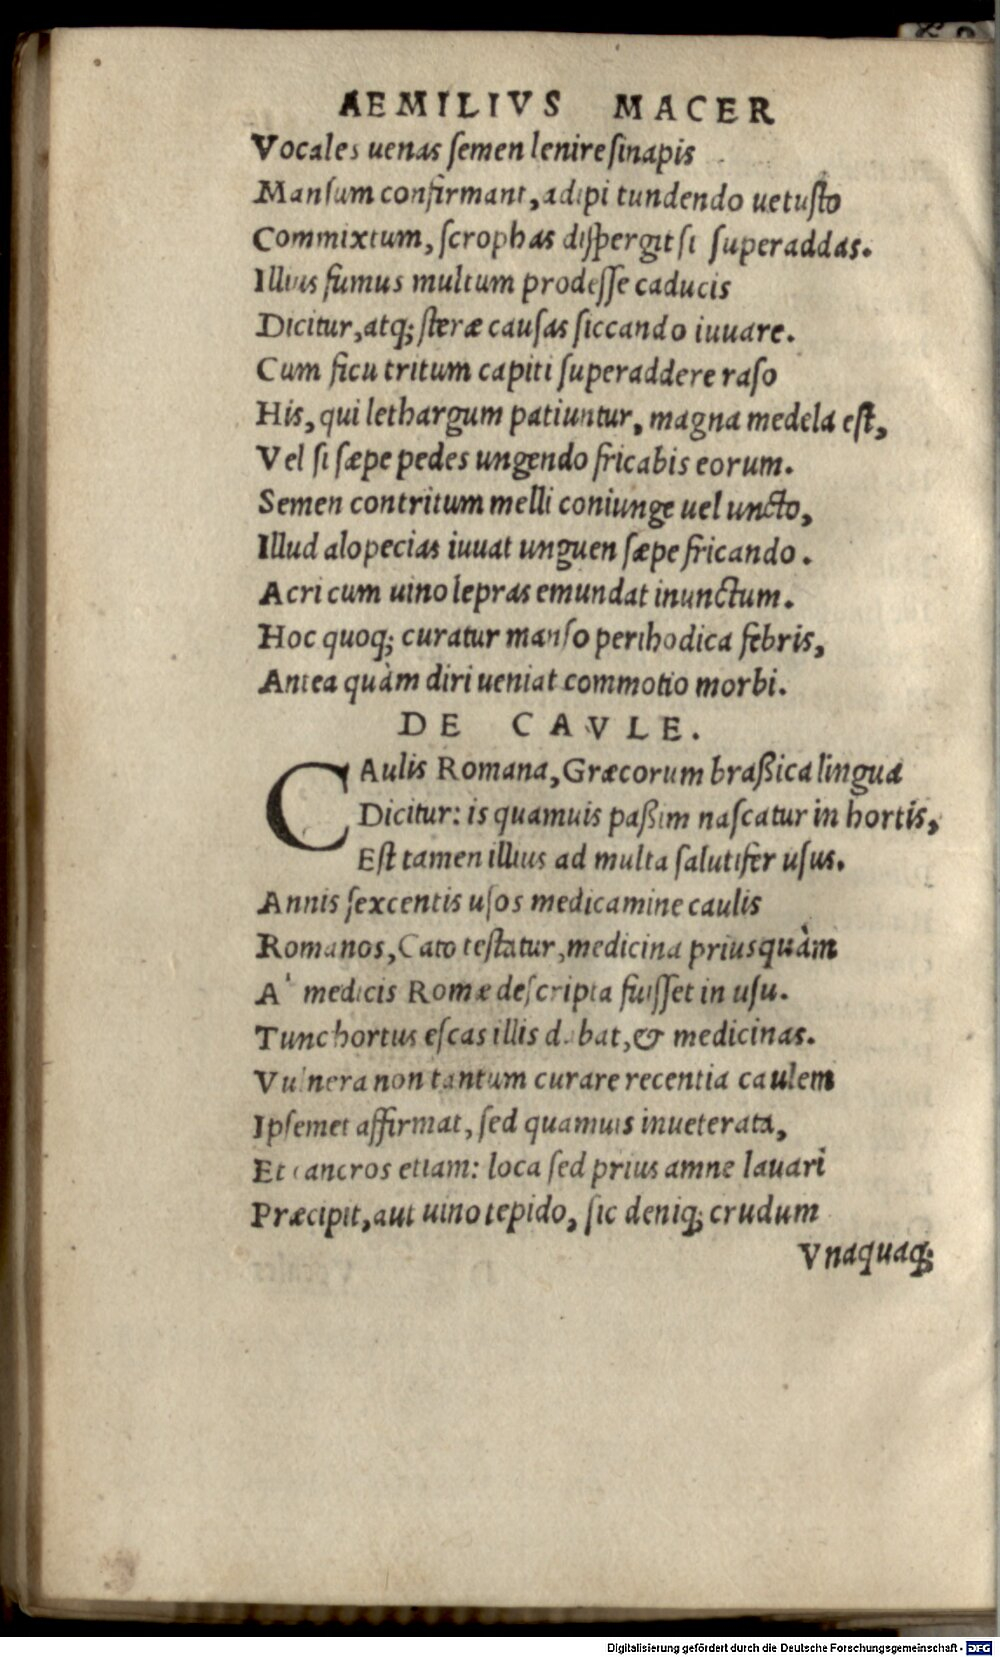 AEMILIVS MACER
Vocales uenas ſemen lenire ſinapis
Manſum confirmant, adipi tundendo uetuſto
Commixtum, ſcrophas diſpergit ſi ſuperaddas.
Illius fumus multum prodeſſe caducis
Dicitur, atq; ſteræ cauſas ſiccando iuuare.
Cum ficu tritum capiti ſuperaddere raſo
His, qui lethargum patiuntur, magna medela eſt,
Vel ſi ſæpe pedes ungendo fricabis eorum.
Semen contritum melli coniunge uel uncto,
Illud alopecias iuuat unguen ſæpe fricando.
Acri cum uino lepras emundat inunctum.
Hoc quoq; curatur manſo perihodica febris,
Antea quàm diri ueniat commotio morbi.
DE CAVLE.
CAulis Romana, Græcorum braßica lingua
Dicitur: is quamuis paßim naſcatur in hortis,
Eſt tamen illius ad multa ſalutifer uſus.
Annis ſexcentis uſos medicamine caulis
Romanos, Cato teſtatur, medicina priusquàm
A` medicis Romæ deſcripta fuiſſet in uſu.
Tunc hortus eſcas illis dabat, & medicinas.
Vulnera non tantum curare recentia caulem
Ipſemet affirmat, ſed quamuis inueterata,
Et cancros etiam: loca ſed prius amne lauari
Præcipit, aut uino tepido, ſic deniq; crudum
Vnaquaq;
Digitalisierung gefördert durch die Deutsche Forschungsgemeinschaft - DFG